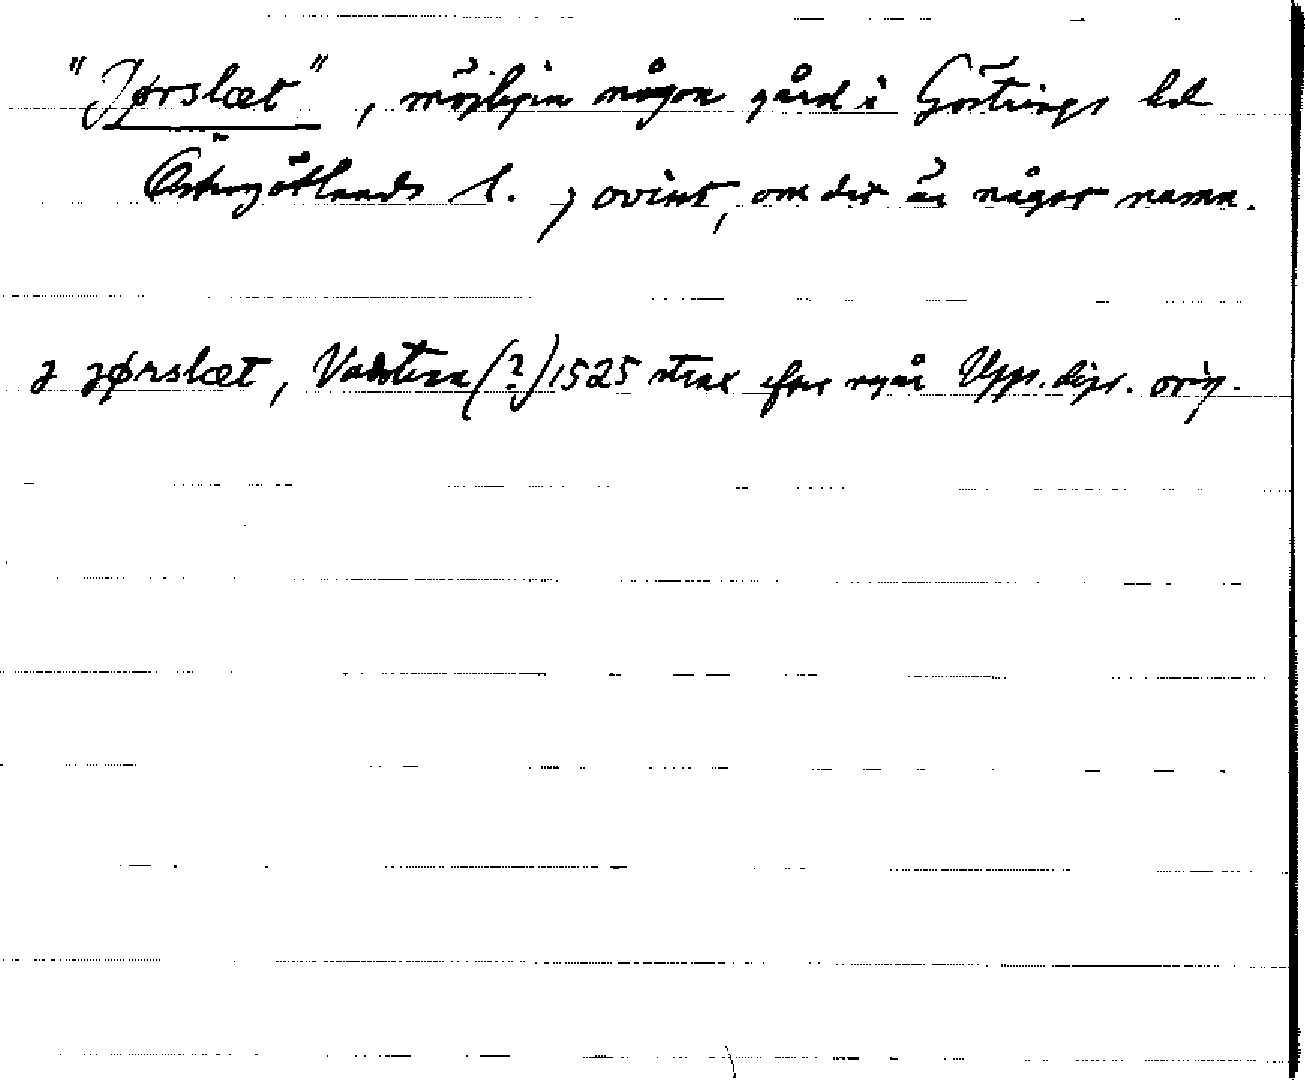 "Jørslæt", möjligen någon gård i Göstrings hd
Östergötlands l. ; ovisst, om det är något namn.
j jørslæt, Vadstena (?) 1525 strax efter nyår Upps. dipl. orig.